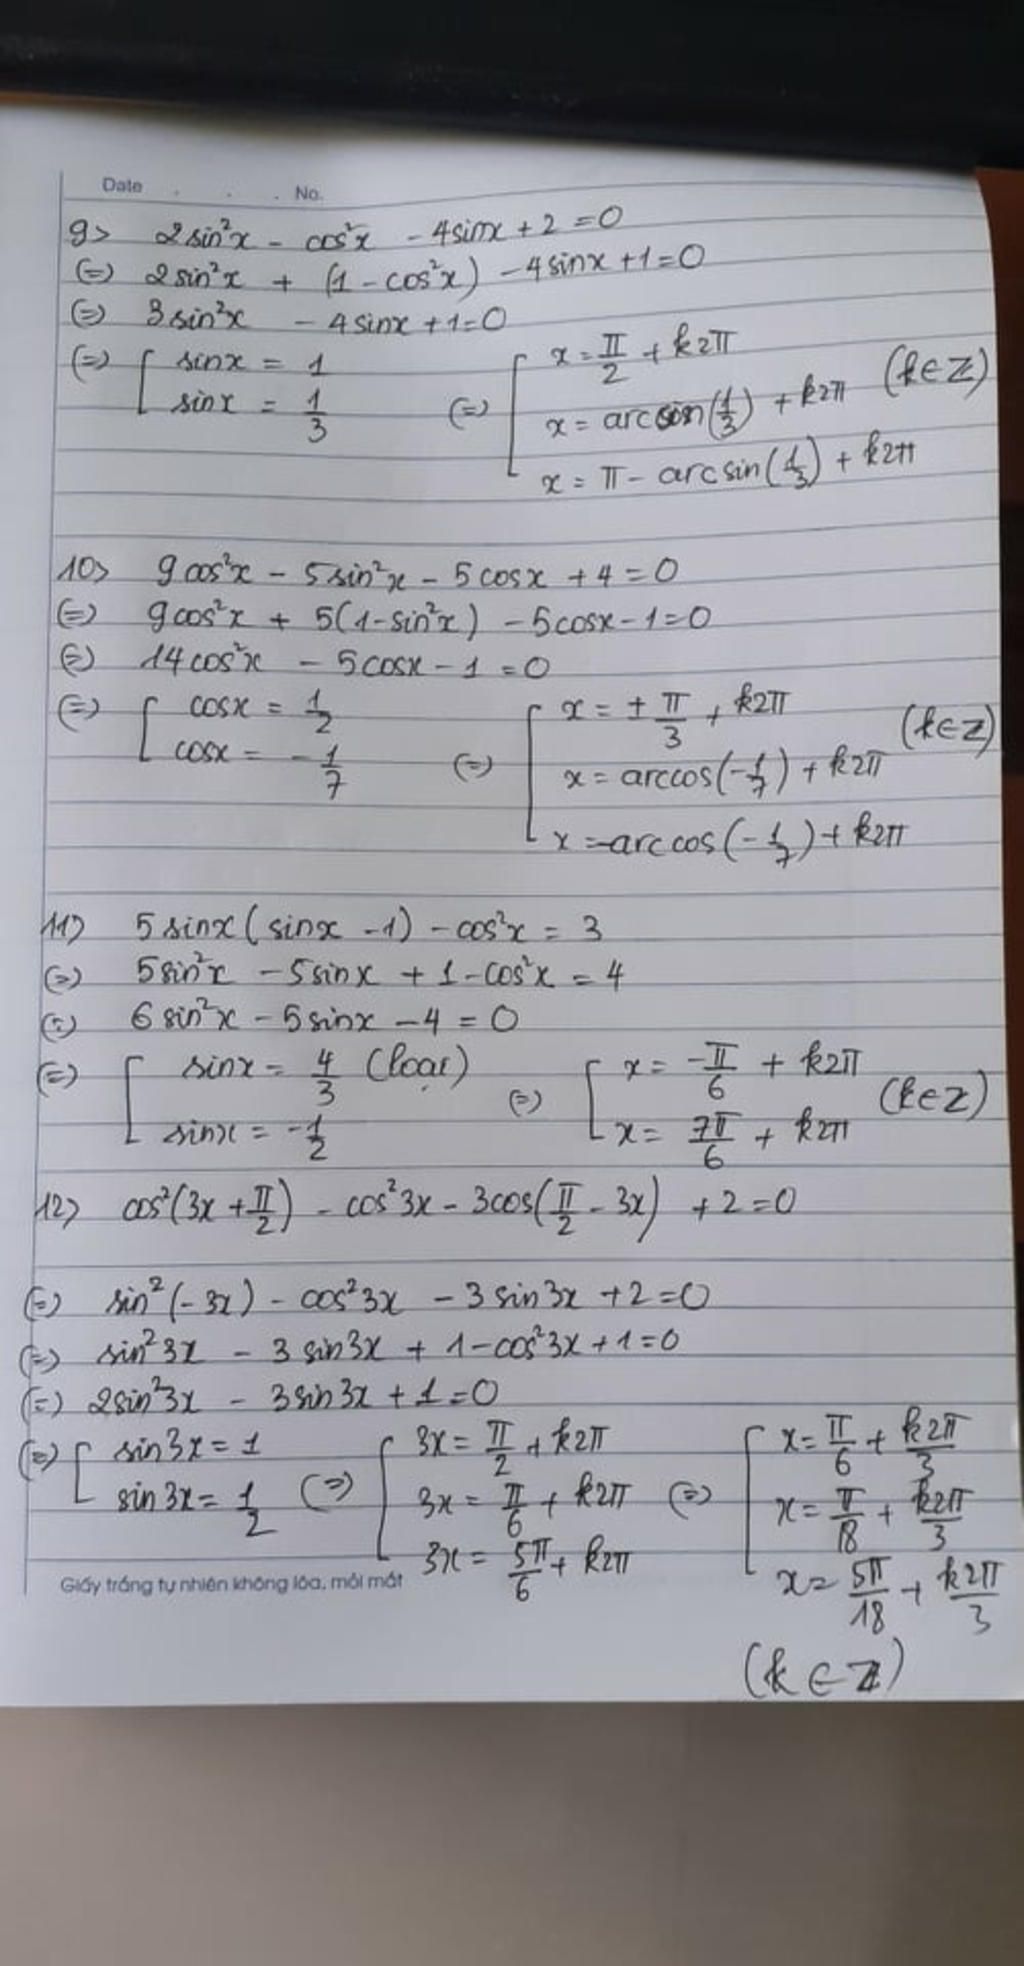 Date . . . No.
9> 2sin²x - cos²x - 4sinx + 2 = 0
(=) 2sin²x + (1 - cos²x) - 4sinx + 1 = 0
(=) 3sin²x - 4sinx + 1 = 0
(=) [ sinx = 1 (=) [ x = π/2 + k2π (k∈Z)
sinx = 1/3 x = arcsin(1/3) + k2π
x = π - arcsin(1/3) + k2π
10> 9cos²x - 5sin²x - 5cosx + 4 = 0
(=) 9cos²x + 5(1-sin²x) - 5cosx - 1 = 0
(=) 14cos²x - 5cosx - 1 = 0
(=) [ cosx = 1/2 (=) [ x = ± π/3 + k2π (k∈Z)
cosx = -1/7 x = arccos(-1/7) + k2π
x = -arccos(-1/7) + k2π
11> 5sinx(sinx - 1) - cos²x = 3
(=) 5sin²x - 5sinx + 1 - cos²x = 4
(=) 6sin²x - 5sinx - 4 = 0
(=) [ sinx = 4/3 (loại) (=) [ x = -π/6 + k2π (k∈Z)
sinx = -1/2 x = 7π/6 + k2π
12> cos²(3x + π/2) - cos²3x - 3cos(π/2 - 3x) + 2 = 0
(=) sin²(-3x) - cos²3x - 3sin3x + 2 = 0
(=) sin²3x - 3sin3x + 1 - cos²3x + 1 = 0
(=) 2sin²3x - 3sin3x + 1 = 0
(=) [ sin3x = 1 (=) [ 3x = π/2 + k2π (=) [ x = π/6 + k2π/3
sin3x = 1/2 3x = π/6 + k2π x = π/18 + k2π/3
3x = 5π/6 + k2π x = 5π/18 + k2π/3
Giấy trắng tự nhiên không lóa, mỏi mắt
(k ∈ Z)